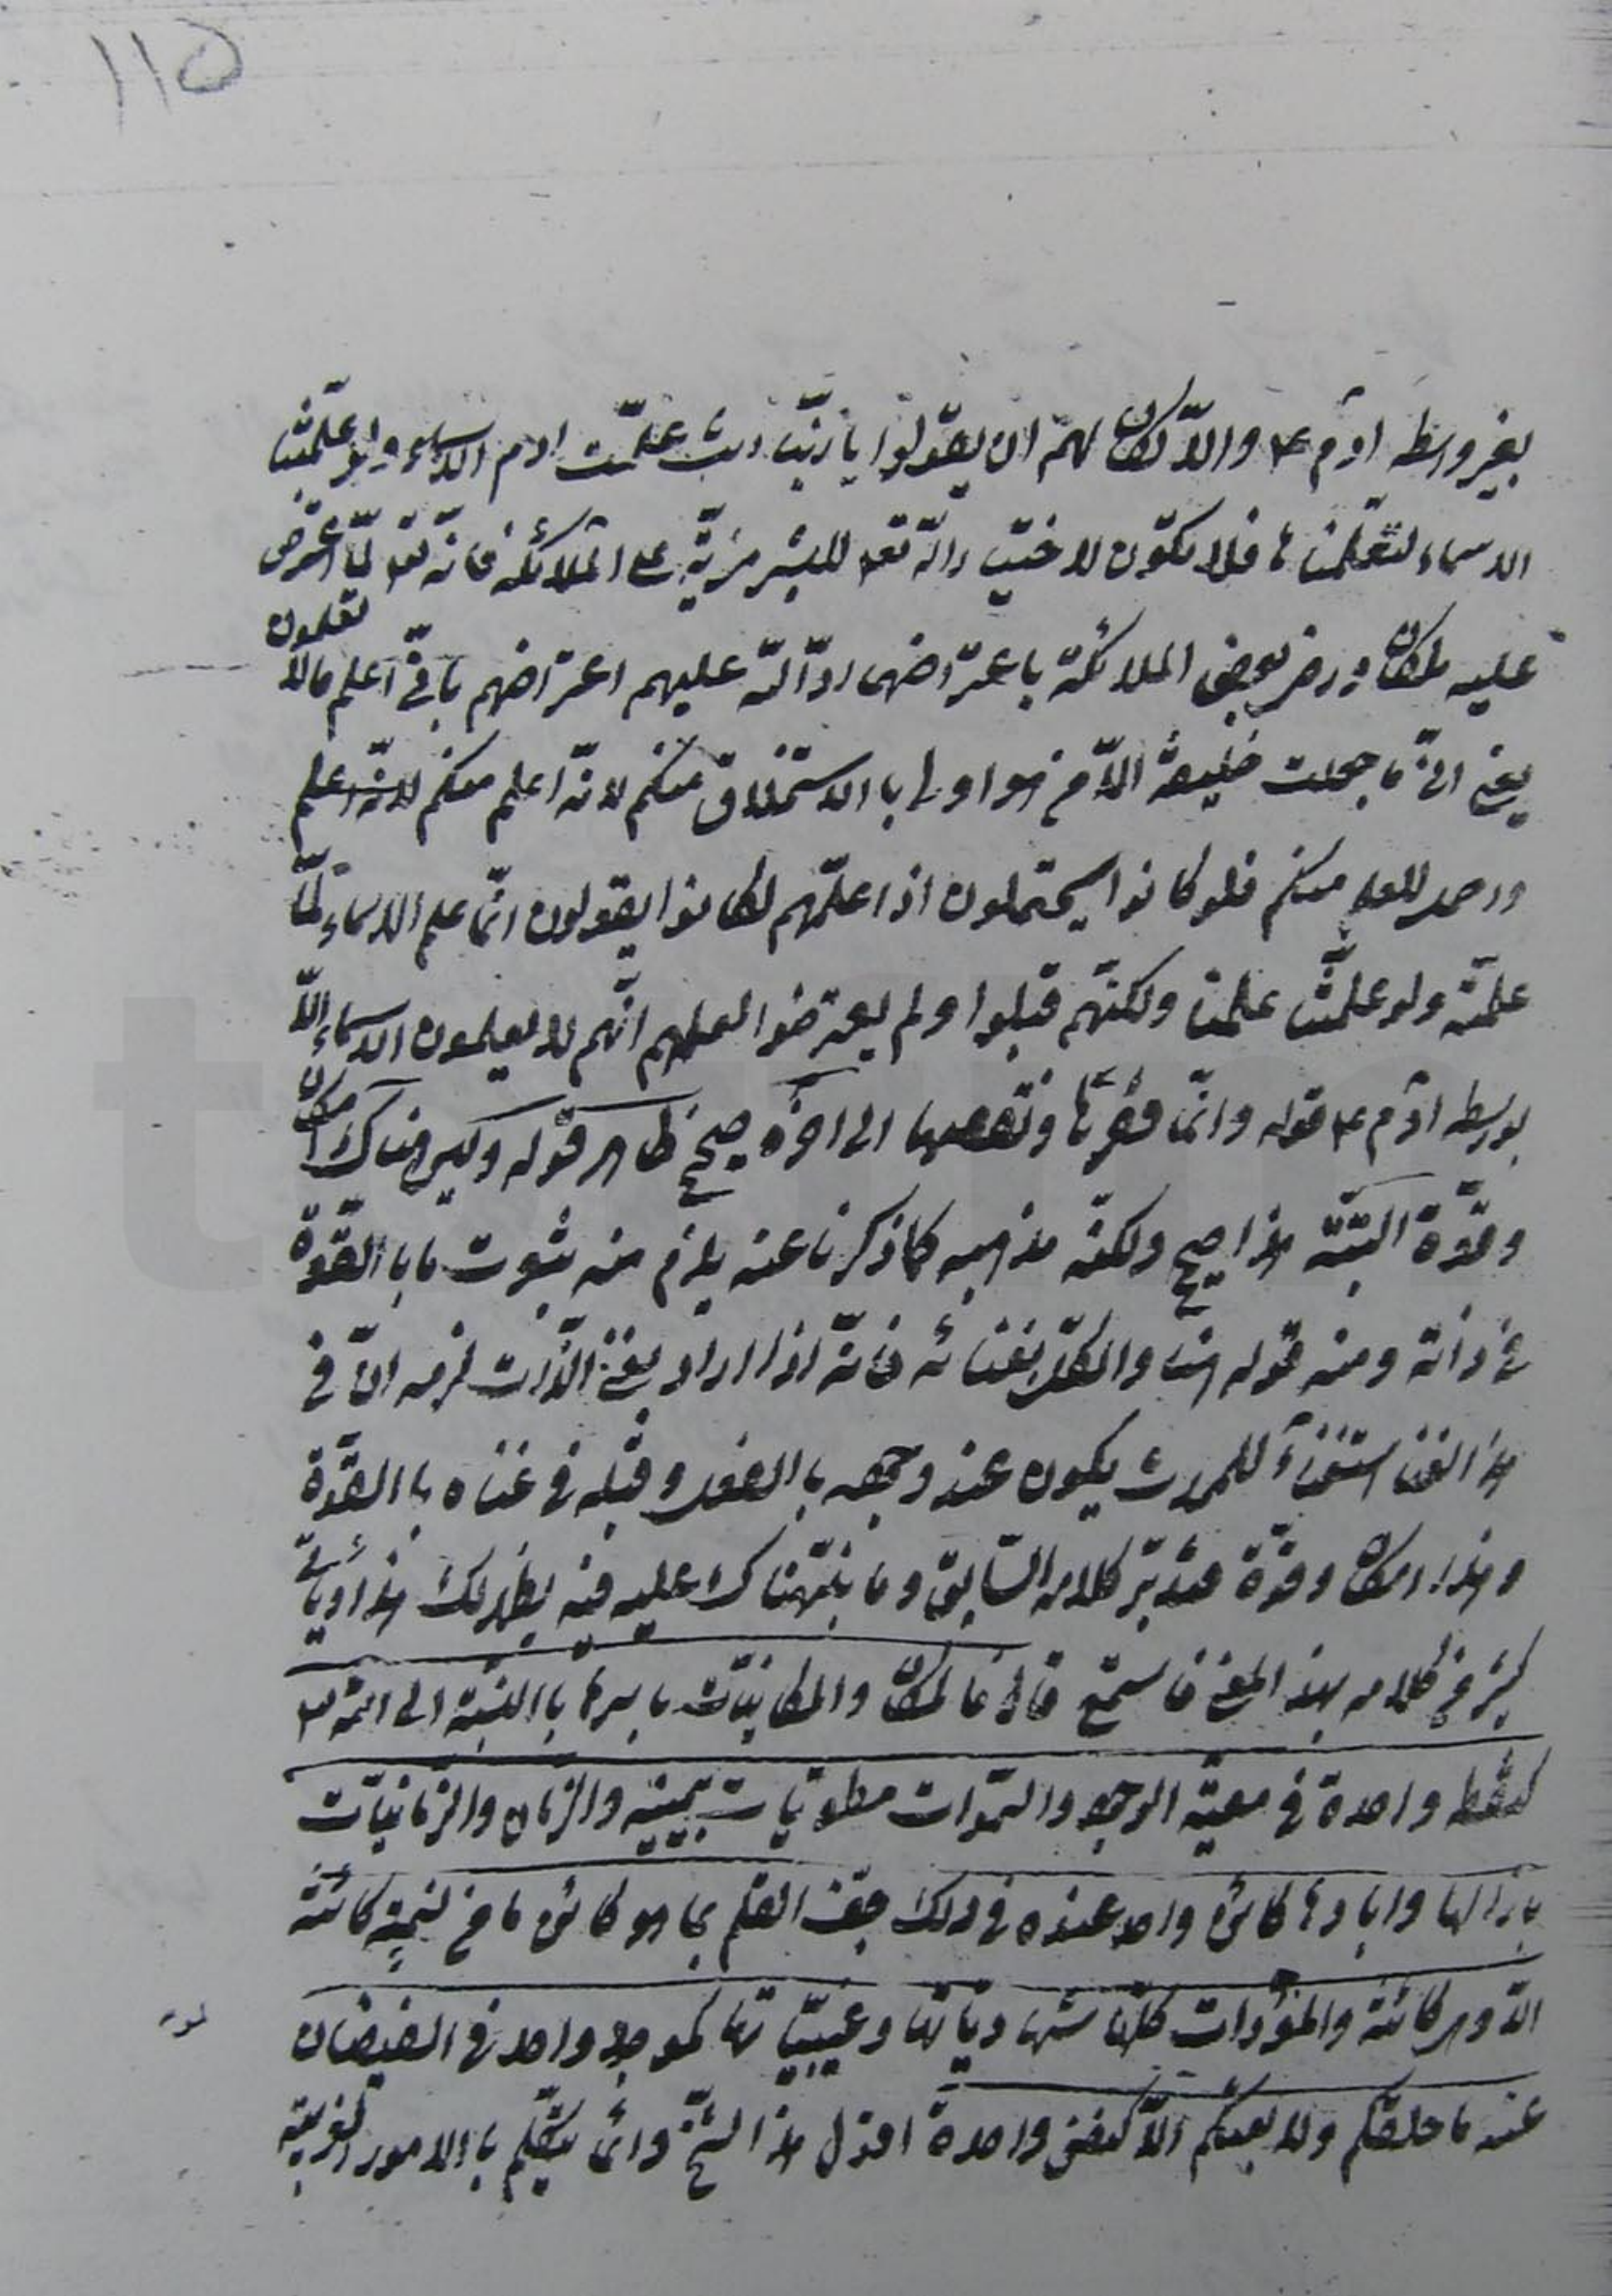 ١١٥
بغير واسطة آدم ع والّا لكان لهم ان يقولوا يا ربّ انت علّمت ادم الاسماء ولو علّمتنا
الاسماء لتعلّمناها فلا يكون لاختيار الله تعا للبشر مزيّة على الملائكة فانّه تعا لمّا اعترض
عليه بعض الملائكة باعتراضهم ردّ الله عليهم اعتراضهم بانّي اعلم ما لا تعلمون
يعني انّي ما جعلت خليفة الّا من هو اولى بالاستخلاف منكم لانّه اعلم منكم لانّه اعلم
للعلم منكم فلو كانوا يحتملون اذا علّمهم لكانوا يقولون انّما علم الاسماء لمّا
علّمته ولو علّمتنا علمنا ولكنّهم قبلوا ولم يعترضوا لعلمهم انّهم لا يعلمون الاسماء الّا
بواسطة آدم ع قوله وانّما الى اخره صحيح ظاهر قوله وليس هناك امكان
وقوّة البتّة هذا صحيح ولكنّه مذهبه كما ذكرنا عنه يلزم منه ثبوت ما بالقوّة
في ذاته ومنه قوله هنا والكلّ بغنائه فانّه اذا اراد بغنى الذّات لزمه انّ في
هذا الغنا استغناء يكون عند وجوده بالفعل وقبله في غناه بالقوّة
وهذا امكان وقوّة فتدبّر كلامه السّابق وما نبّهناك عليه فيه يظهر لك هذا ويأتي
كثير في كلامه بهذا المعنى فاستمع قال فالمكان والمكانيّات باسرها بالنّسبة الى الله تعا
كنقطة واحدة في معيّة الوجود والسّموات مطويّات بيمينه والزّمان والزّمانيّات
بازالها وابادها كان واحد عنده في ذلك جفّ القلم بما هو كائن ما من نسمة كائنة
الّا وهي كائنة والموجودات كلّها شهاديّاتها وغيبيّاتها كموجود واحد في الفيضان
عنه ما خلقكم ولا بعثكم الّا كنفس واحدة اقول هذا الشّيخ وانّما يتكلّم بالامور الغريبة